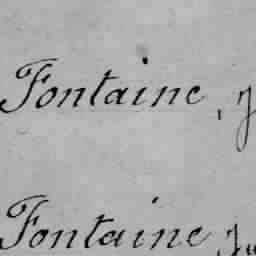 Fontaine,
Fontaine,